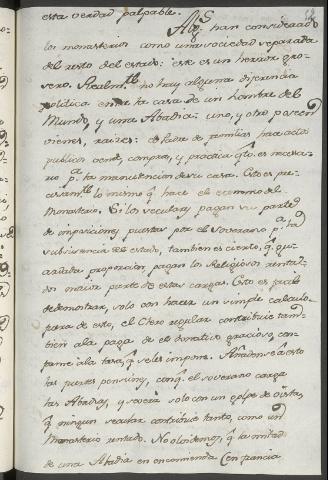 esta verdad palpable.
Alg.s han considerado
los monasterios como una sociedad separada
del resto del estado: este es un herror gro-
sero. Realm.te no hay alguna diferencia
politica entre la casa de un hombre del
Mundo, y una Abadia: uno, y otro poseen
vienes, raizes: el Padre de familias hace actos
publicos vende, compra, y practica q.to es necesa-
rio p.a la manutencion de su casa. Esto es pre-
cisam.te lo mismo q. hace el economo del
Monasterio. Si los seculares pagan su parte
de imposiciones puestas por el Soverano p.a la
subsistencia del estado, tambien es cierto, q. gu-
ardada proporcion pagan los Religiosos renta-
dos maior parte de estas cargas. Esto es facil
de demostrar, solo con hacer un simple calculo.
para de esto, el Clero regular contribuie tam-
bien ala paga de el donativo gracioso, con-
forme ala tasa, q. seles impone. Añadense á esto
las pensiones, con q. el soverano carga
las Abadias, y severá solo con un golpe de vista,
q. ningun secular contribuie tanto, como un
Monasterio rentado. No olvidemos, q. la mitad
de una Abadia en encomienda en francia